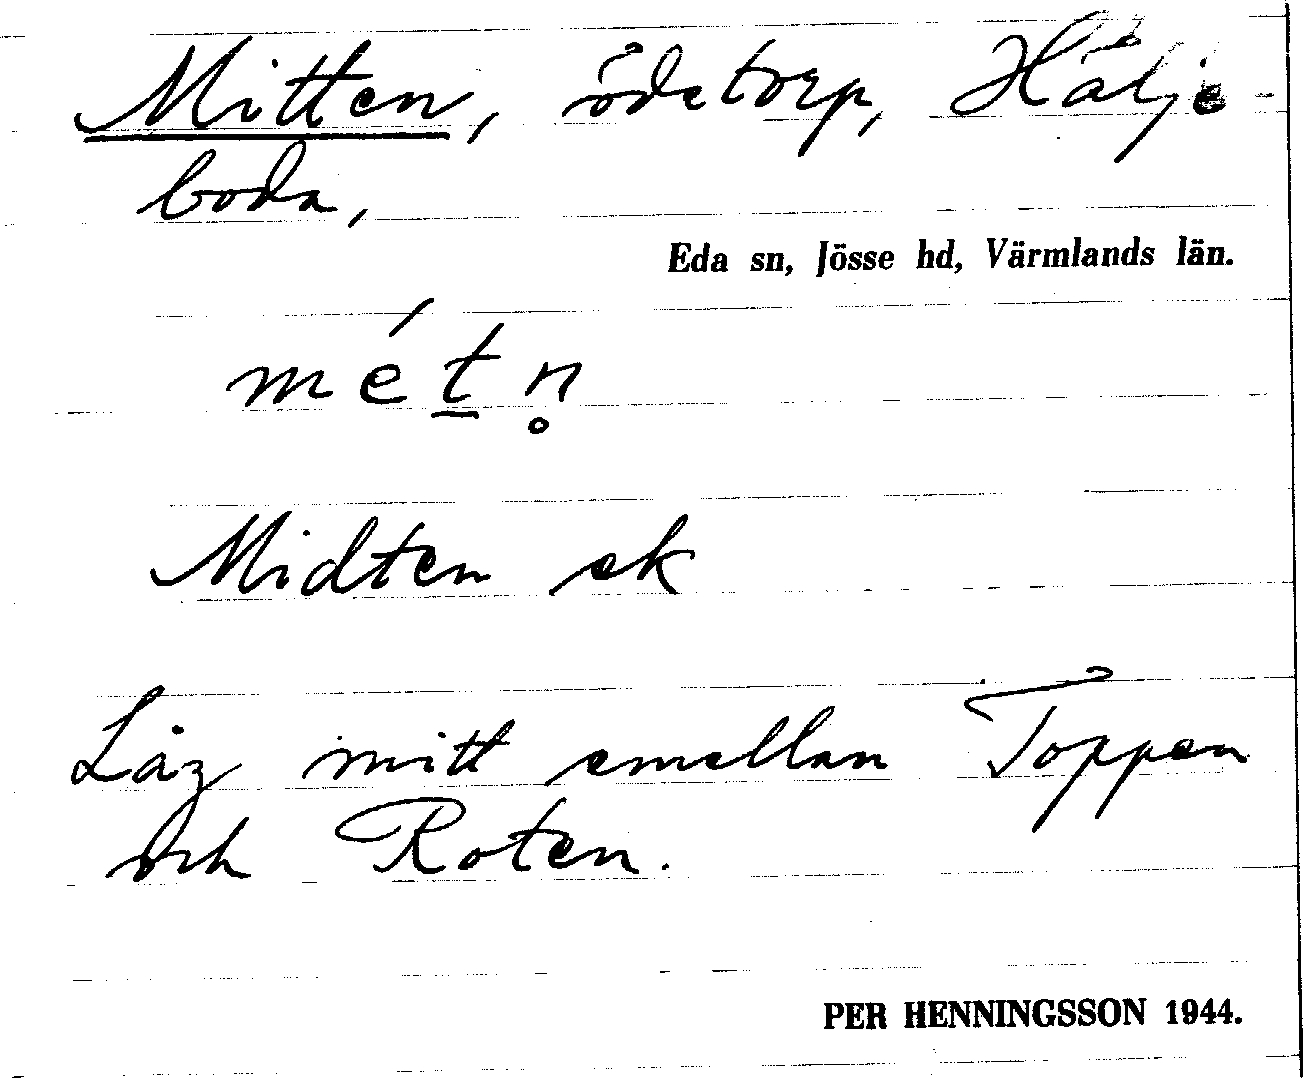 Mitten, ödetorp, Hälje-
boda,
Eda sn, Jösse hd, Värmlands län.
métn̥
Midten ek
Låg mitt emellan Toppen
och Roten.
PER HENNINGSSON 1944.